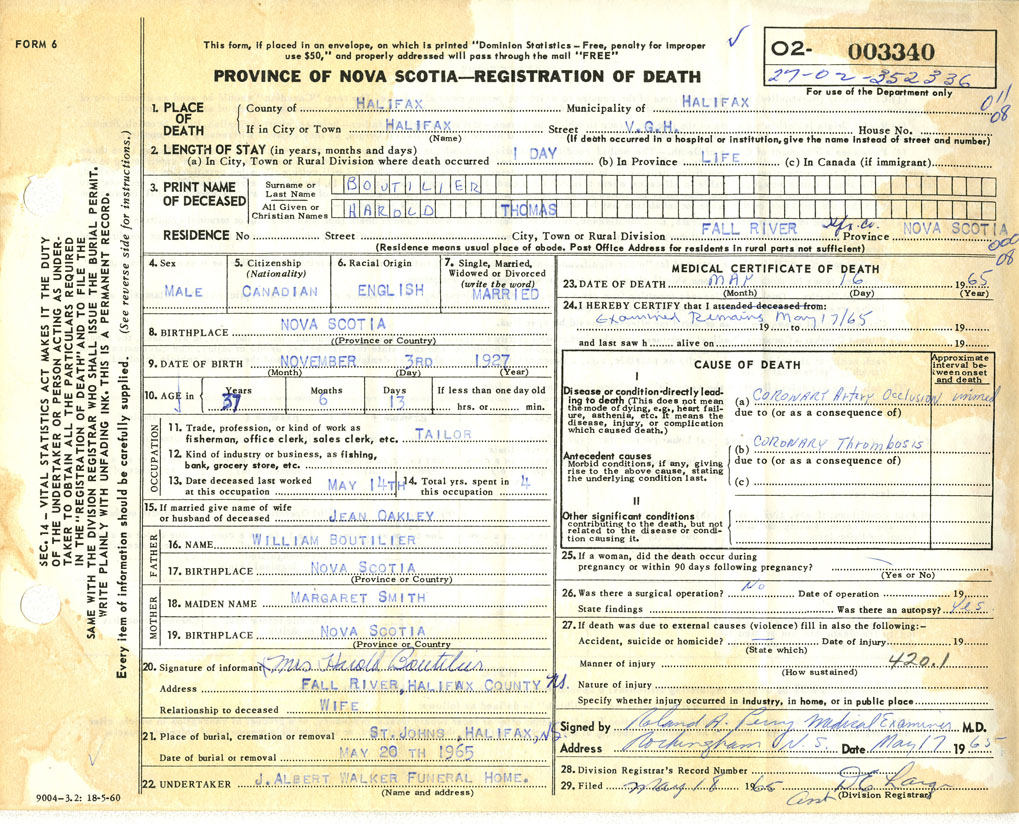 FORM 6
This form, if placed in an envelope, on which is printed "Dominion Statistics – Free, penalty for improper
use $50," and properly addressed will pass through the mail "FREE"
PROVINCE OF NOVA SCOTIA—REGISTRATION OF DEATH
02- 003340
27-02-352336
For use of the Department only
011
08
1. PLACE OF DEATH { County of HALIFAX Municipality of HALIFAX
If in City or Town HALIFAX Street V.G.H. House No.
(Name) (If death occurred in a hospital or institution, give the name instead of street and number)
2. LENGTH OF STAY (in years, months and days)
(a) In City, Town or Rural Division where death occurred 1 DAY (b) In Province LIFE (c) In Canada (if immigrant)
3. PRINT NAME OF DECEASED
Surname or Last Name BOUTILIER
All Given or Christian Names HAROLD THOMAS
RESIDENCE No Street City, Town or Rural Division FALL RIVER Hfx. Co. Province NOVA SCOTIA
(Residence means usual place of abode. Post Office Address for residents in rural parts not sufficient)
08
4. Sex MALE
5. Citizenship (Nationality) CANADIAN
6. Racial Origin ENGLISH
7. Single, Married, Widowed or Divorced (write the word) MARRIED
8. BIRTHPLACE NOVA SCOTIA
((Province or Country)
9. DATE OF BIRTH NOVEMBER 3RD 1927
(Month) (Day) (Year)
10. AGE in { Years 37 Months 6 Days 13 If less than one day old
hrs. or min.
OCCUPATION
11. Trade, profession, or kind of work as
fisherman, office clerk, sales clerk, etc. TAILOR
12. Kind of industry or business, as fishing,
bank, grocery store, etc.
13. Date deceased last worked
at this occupation MAY 14TH
14. Total yrs. spent in
this occupation 4
15. If married give name of wife
or husband of deceased JEAN OAKLEY
FATHER
16. NAME WILLIAM BOUTILIER
17. BIRTHPLACE NOVA SCOTIA
(Province or Country)
MOTHER
18. MAIDEN NAME MARGARET SMITH
19. BIRTHPLACE NOVA SCOTIA
(Province or Country)
20. Signature of informant x Mrs Harold Boutilier
Address FALL RIVER, HALIFAX COUNTY NS.
Relationship to deceased WIFE
21. Place of burial, cremation or removal ST. JOHNS, HALIFAX, NS.
Date of burial or removal MAY 20 TH 1965
22. UNDERTAKER J. ALBERT WALKER FUNERAL HOME.
(Name and address)
9004–3.2: 18-5-60
MEDICAL CERTIFICATE OF DEATH
23. DATE OF DEATH MAY 16 1965
(Month) (Day) (Year)
24. I HEREBY CERTIFY that I attended deceased from:
Examined Remains May 17/65
19 to 19
and last saw h alive on 19
CAUSE OF DEATH
Approximate interval between onset and death
I
Disease or condition directly leading to death (This does not mean the mode of dying, e.g., heart failure, asthenia, etc. It means the disease, injury, or complication which caused death.)
(a) CORONARY Artery Occlusion immed
due to (or as a consequence of)
Antecedent causes
Morbid conditions, if any, giving rise to the above cause, stating the underlying condition last.
(b) CORONARY Thrombosis
due to (or as a consequence of)
(c)
II
Other significant conditions
contributing to the death, but not related to the disease or condition causing it.
25. If a woman, did the death occur during
pregnancy or within 90 days following pregnancy? —
(Yes or No)
26. Was there a surgical operation? No Date of operation 19
State findings Was there an autopsy? Yes
27. If death was due to external causes (violence) fill in also the following:–
Accident, suicide or homicide? — Date of injury 19
(State which)
Manner of injury 420.1
(How sustained)
Nature of injury
Specify whether injury occurred in Industry, in home, or in public place
Signed by Roland A. Perry Medical Examiner M.D.
Address Rockingham N.S. Date May 17 1965
28. Division Registrar's Record Number
29. Filed May 18 1965
(Division Registrar)
SEC. 14 – VITAL STATISTICS ACT MAKES IT THE DUTY
OF THE UNDERTAKER OR PERSON ACTING AS UNDER-
TAKER TO OBTAIN ALL THE PARTICULARS REQUIRED
IN THE "REGISTRATION OF DEATH" AND TO FILE THE
SAME WITH THE DIVISION REGISTRAR WHO SHALL ISSUE THE BURIAL PERMIT.
WRITE PLAINLY WITH UNFADING INK. THIS IS A PERMANENT RECORD.
Every item of information should be carefully supplied. (See reverse side for instructions.)